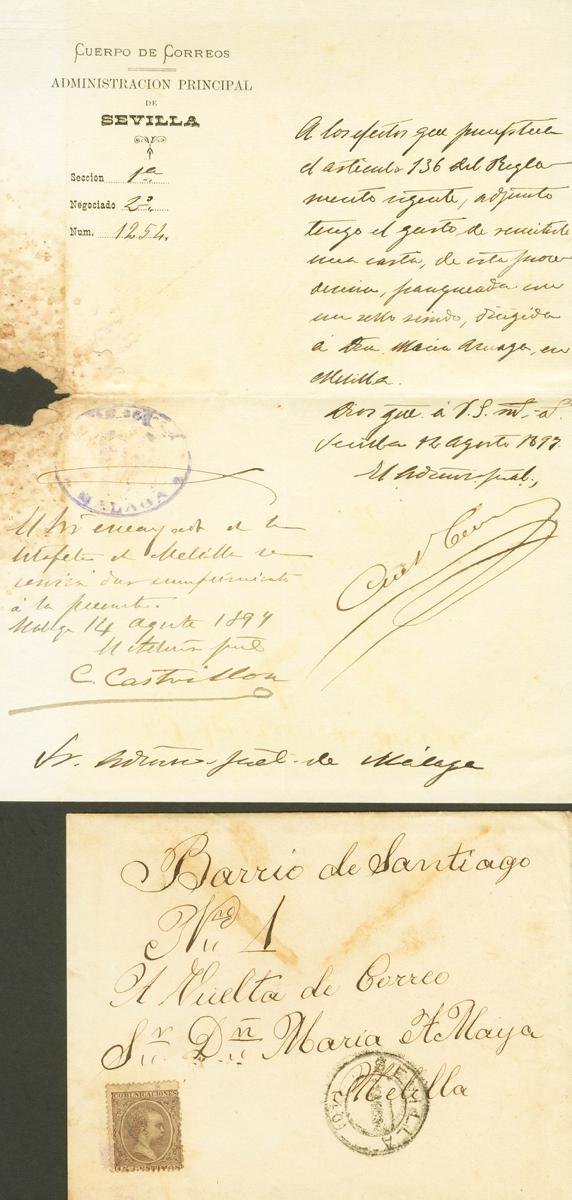 CUERPO DE CORREOS
ADMINISTRACION PRINCIPAL
DE
SEVILLA
Seccion 1ª
Negociado 2º
Num. 1254.
A los efectos que
el articulo 136 del Regla
mento vigente, adjunto
tengo el gusto de remitirle
una carta, de esta proce
dencia, franqueada con
un sello servido, dirigida
á Dña. Maria en
Melilla.
Dios gue. á V.S. ms. as.
Sevilla 12 Agosto 1897
El Admor. pral.,
MALAGA
Al Sr. encargado de la
Estafeta de Melilla se
servirá dar cumplimiento
á la presente.
Malaga 14 agosto 1897
El Admor. pral.
C. Castrillon
Sr. Admor. pral. de Málaga
Barrio de Santiago
Nº 1
A Vuelta de Correo
Sr. Dn. Maria A Maya
Melilla
COMUNICACIONES
CENTIMOS